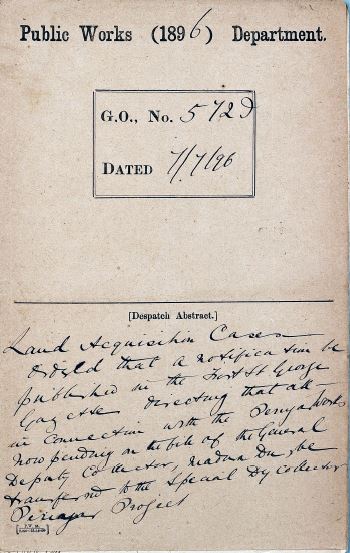 Public Works (1896) Department.
G.O., No. 572 D
DATED 7/7/96
[Despatch Abstract.]
Land Acquisition Cases
that a notification be
published in the Fort St George
Gazette directing that all
in connection with the Periyar Works
now pending on the file of the General
Deputy Collector, Madura Du, be
transferred to the Special Dy Collector
Periyar Project